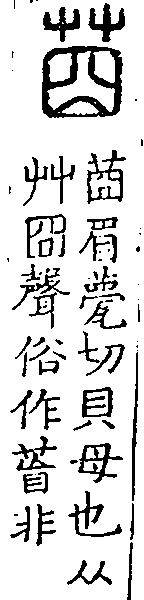 莔
莔眉甍切貝母也从
艸囧聲俗作非